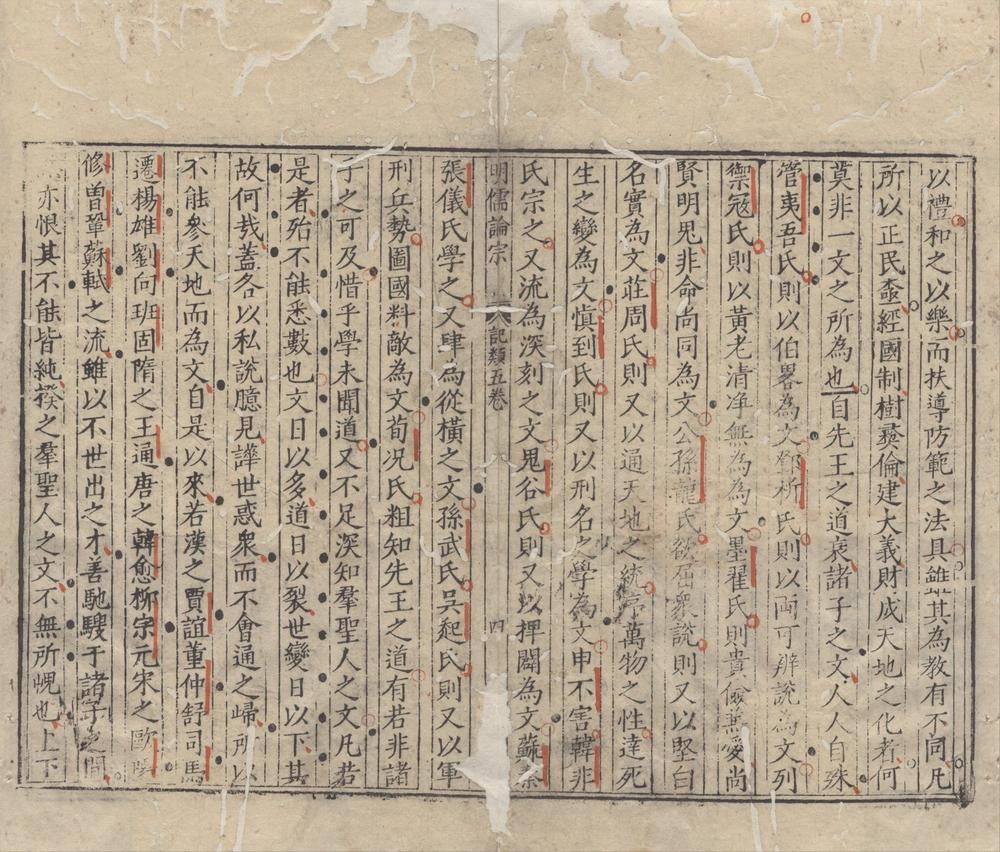 以禮和之以樂而扶導防範之法具雖其為教有不同凡
所以正民經國制樹彞倫建大義財成天地之化者何
莫非一文之所為也自先王之道衰諸子之文人人自殊
管夷吾氏則以伯畧為文鄧析氏則以兩可辨說為文列
禦冦氏則以黃老清净無為為文墨翟氏則貴儉兼愛尚
賢明鬼非命尚同為文公孫龍氏欲屈衆說則又以堅白
名實為文莊周氏則又以通天地之統序萬物之性達死
生之變為文慎到氏則又以刑名之學為文申不害韓非
氏宗之又流為深刻之文鬼谷氏則又以捭闔為文蘇秦
明儒論宗 記類五卷 四
張儀氏學之又肆為從橫之文孫武氏吳起氏則又以軍
刑兵勢圖國料敵為文荀况氏粗知先王之道有若非諸
子之可及惜乎學未聞道又不足深知羣聖人之文凡若
是者殆不能悉數也文日以多道日以裂世變日以下其
故何哉蓋各以私說臆見譁世惑衆而不會通之歸所以
不能參天地而為文自是以來若漢之賈誼董仲舒司馬
遷楊雄劉向班固隋之王通唐之韓愈柳宗元宋之歐陽
修曾鞏蘇軾之流雖以不世出之才善馳騁于諸子之間
亦恨其不能皆純揆之羣聖人之文不無所愧也上下